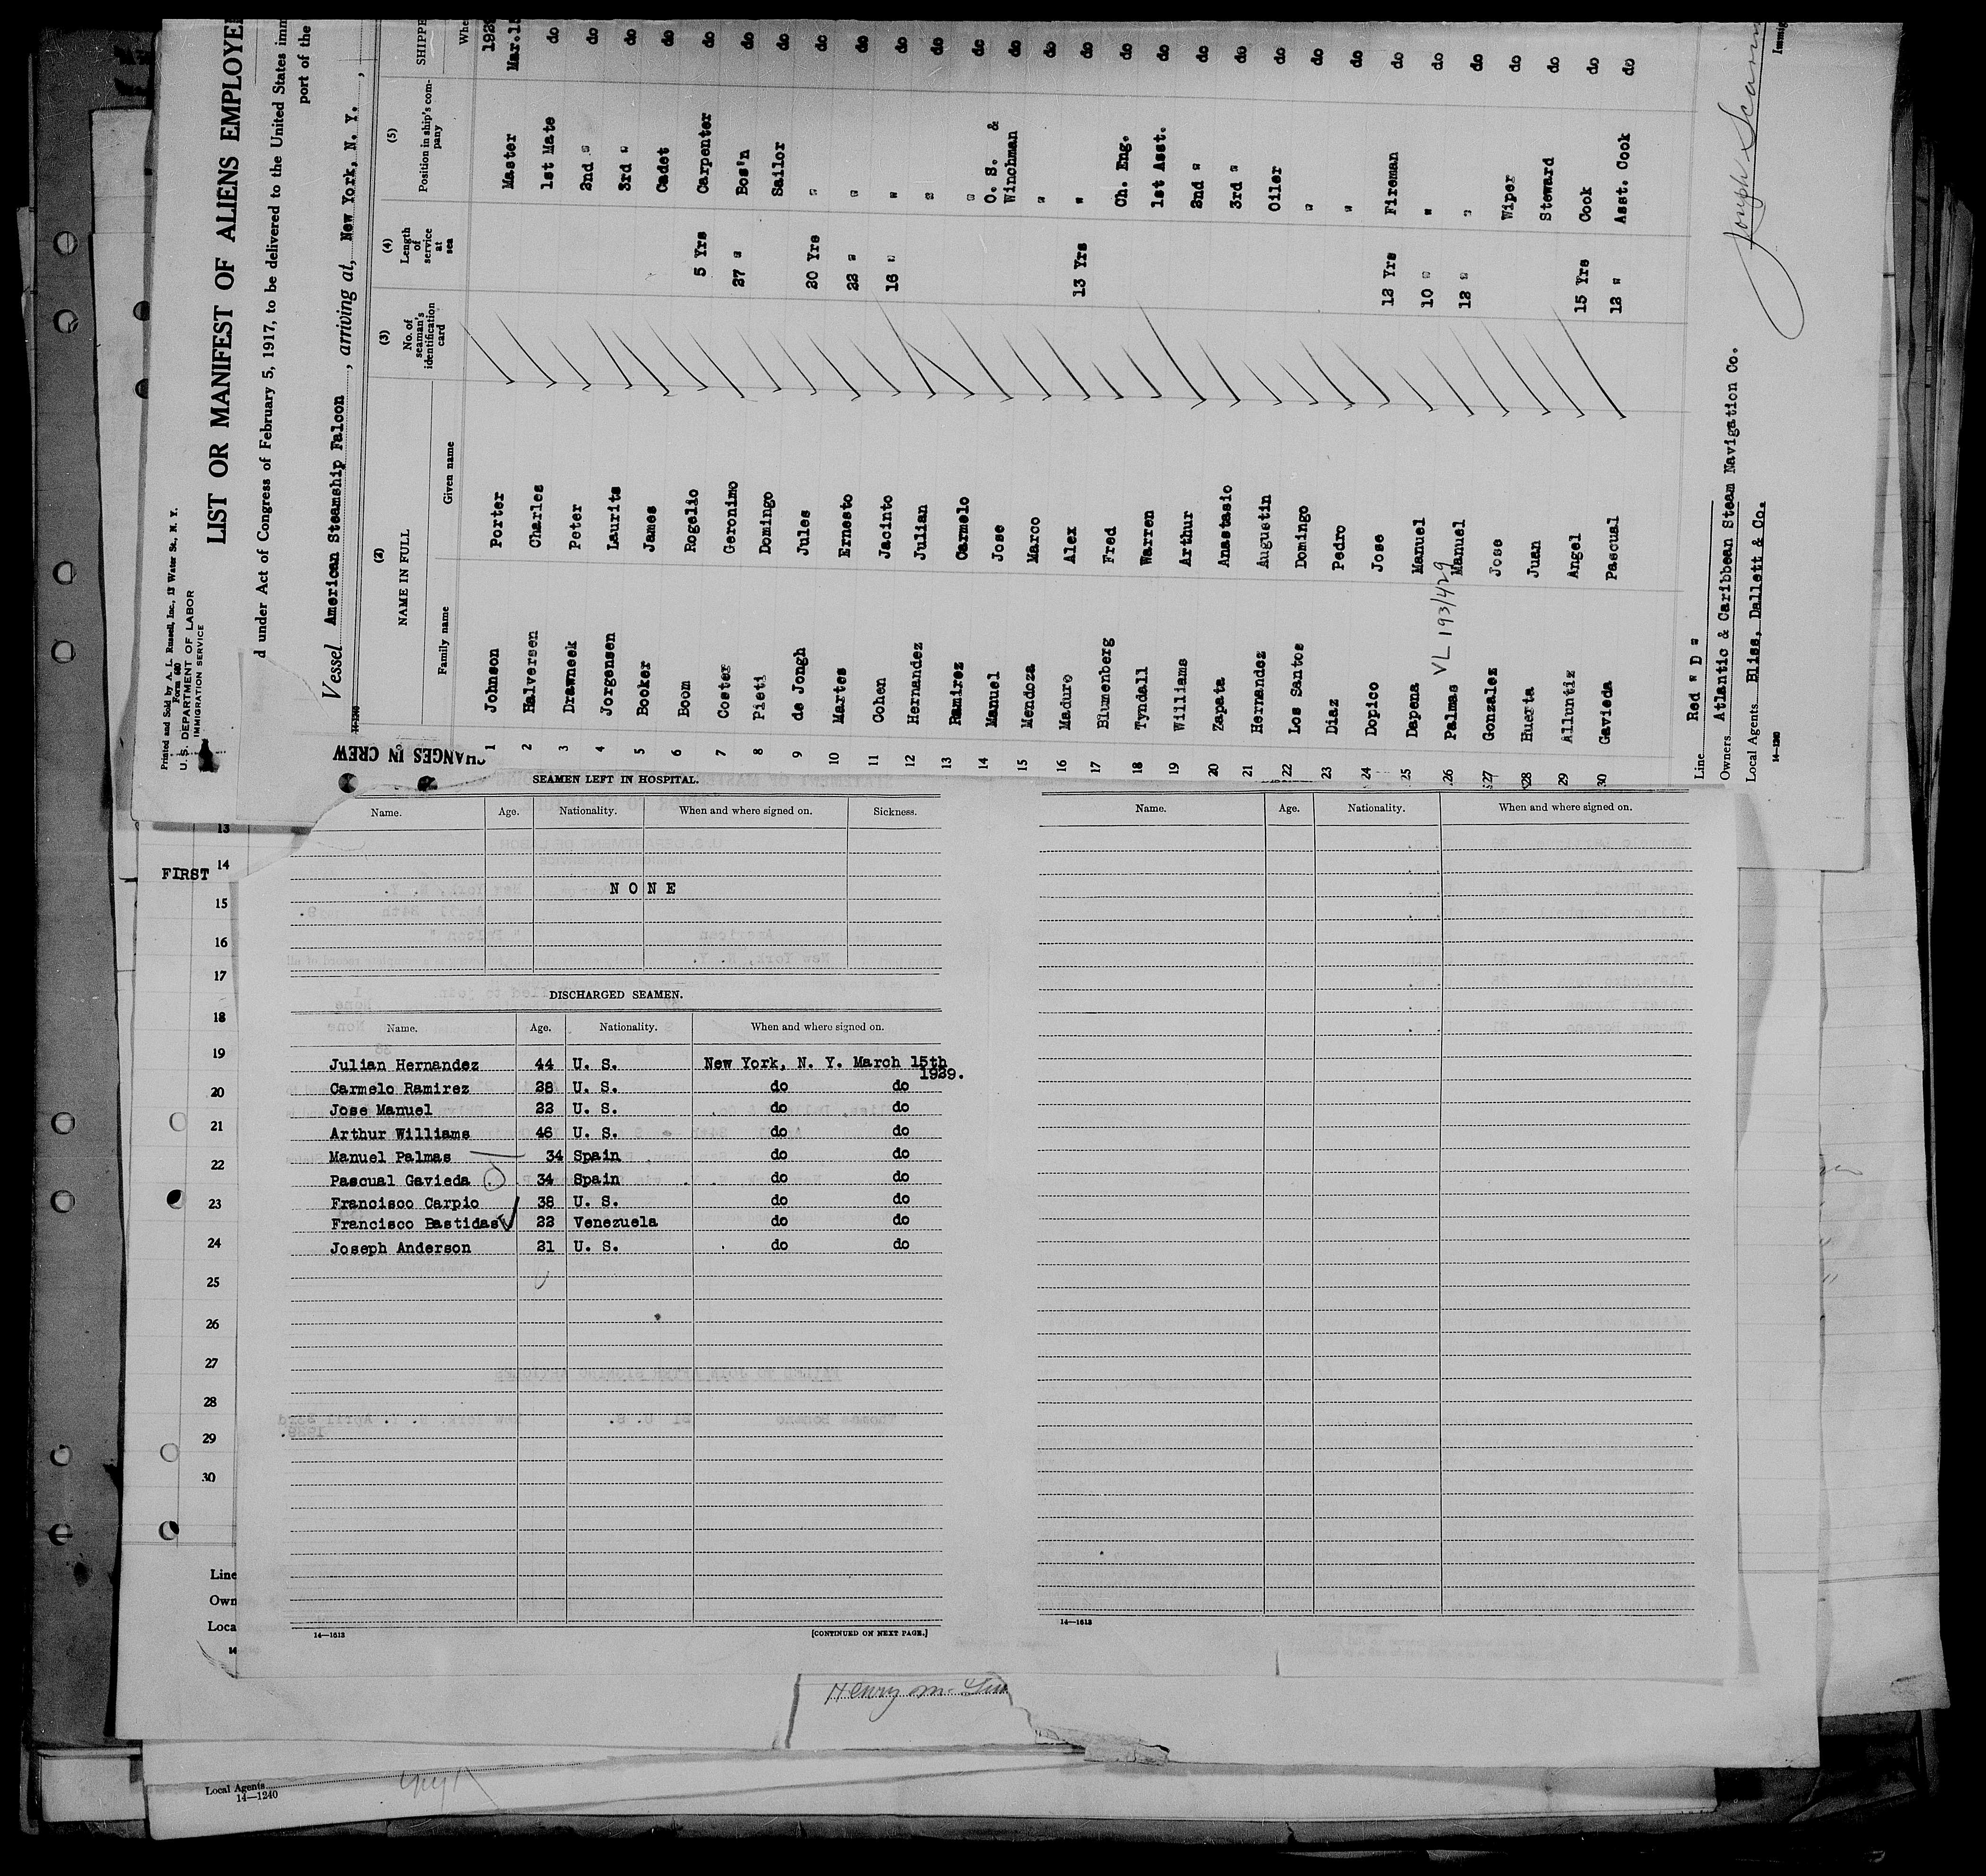 Printed and Sold by A. L. Russell, Inc., 12 Water St., N. Y.
Form 680
U. S. DEPARTMENT OF LABOR
IMMIGRATION SERVICE
LIST OR MANIFEST OF ALIENS EMPLOYE
d under Act of Congress of February 5, 1917, to be delivered to the United States imm
port of the
Vessel American Steamship Falcon, arriving at, New York, N. Y.,
(2) NAME IN FULL
Family name Given name
(3) No. of seaman's identification card
(4) Length of service at sea
(5) Position in ship's company
SHIPPE
Whe
1 Johnson Porter Master Mar.15
2 Halversen Charles 1st Mate do
3 Drawneek Peter 2nd " do
4 Jorgensen Laurits 3rd " do
5 Booker James Cadet do
6 Boom Rogelio 5 Yrs Carpenter do
7 Coster Geronimo 27 " Bos'n do
8 Pieti Domingo Sailor do
9 de Jongh Jules 20 Yrs " do
10 Martes Ernesto 22 " " do
11 Cohen Jacinto 16 " " do
12 Hernandez Julian " do
13 Ramirez Carmelo " do
14 Manuel Jose O. S. & Winchman do
15 Mendoza Marco " do
16 Maduro Alex 13 Yrs " do
17 Blumenberg Fred Ch. Eng. do
18 Tyndall Warren 1st Asst. do
19 Williams Arthur 2nd " do
20 Zapata Anastasio 3rd " do
21 Hernandez Augustin Oiler do
22 Los Santos Domingo " do
23 Diaz Pedro " do
24 Dopico Jose 12 Yrs Fireman do
25 Dapena Manuel 10 " " do
26 Palmas VL 193/429 Manuel 12 " " do
27 Gonzalez Jose Wiper do
28 Huerta Juan Steward do
29 Alluntiz Angel 15 Yrs Cook do
30 Gavieda Pascual 12 " Asst. Cook do
Line Red " D "
Owners Atlantic & Caribbean Steam Navigation Co.
Local Agents Bliss, Dallett & Co.
14-1240
Joseph
Immig
CHANGES IN CREW
SEAMEN LEFT IN HOSPITAL.
Name. Age. Nationality. When and where signed on. Sickness.
NONE
DISCHARGED SEAMEN.
Name. Age. Nationality. When and where signed on.
Julian Hernandez 44 U. S. New York, N. Y. March 15th
1929.
Carmelo Ramirez 28 U. S. do do
Jose Manuel 22 U. S. do do
Arthur Williams 46 U. S. do do
Manuel Palmas 34 Spain do do
Pascual Gavieda 34 Spain do do
Francisco Carpio 38 U. S. do do
Francisco Bastidas 22 Venezuela do do
Joseph Anderson 21 U. S. do do
14—1613
[CONTINUED ON NEXT PAGE.]
Name. Age. Nationality. When and where signed on.
14—1613
13
FIRST 14
15
16
17
18
19
20
21
22
23
24
25
26
27
28
29
30
Line
Own
Loca
14
Henry
Local Agents
14—1240